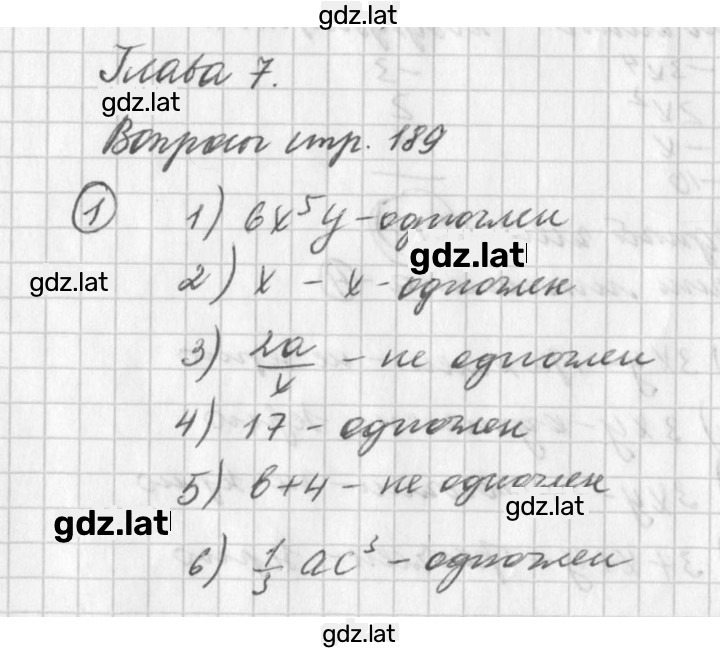 gdz.lat
Глава 7.
gdz.lat
Вопросы стр. 189
1 1) 6x⁵y - одночлен
gdz.lat
gdz.lat 2) x - x - одночлен
3) 2a/x - не одночлен
4) 17 - одночлен
5) b+4 - не одночлен
gdz.lat
gdz.lat
6) 1/3 ac³ - одночлен
gdz.lat